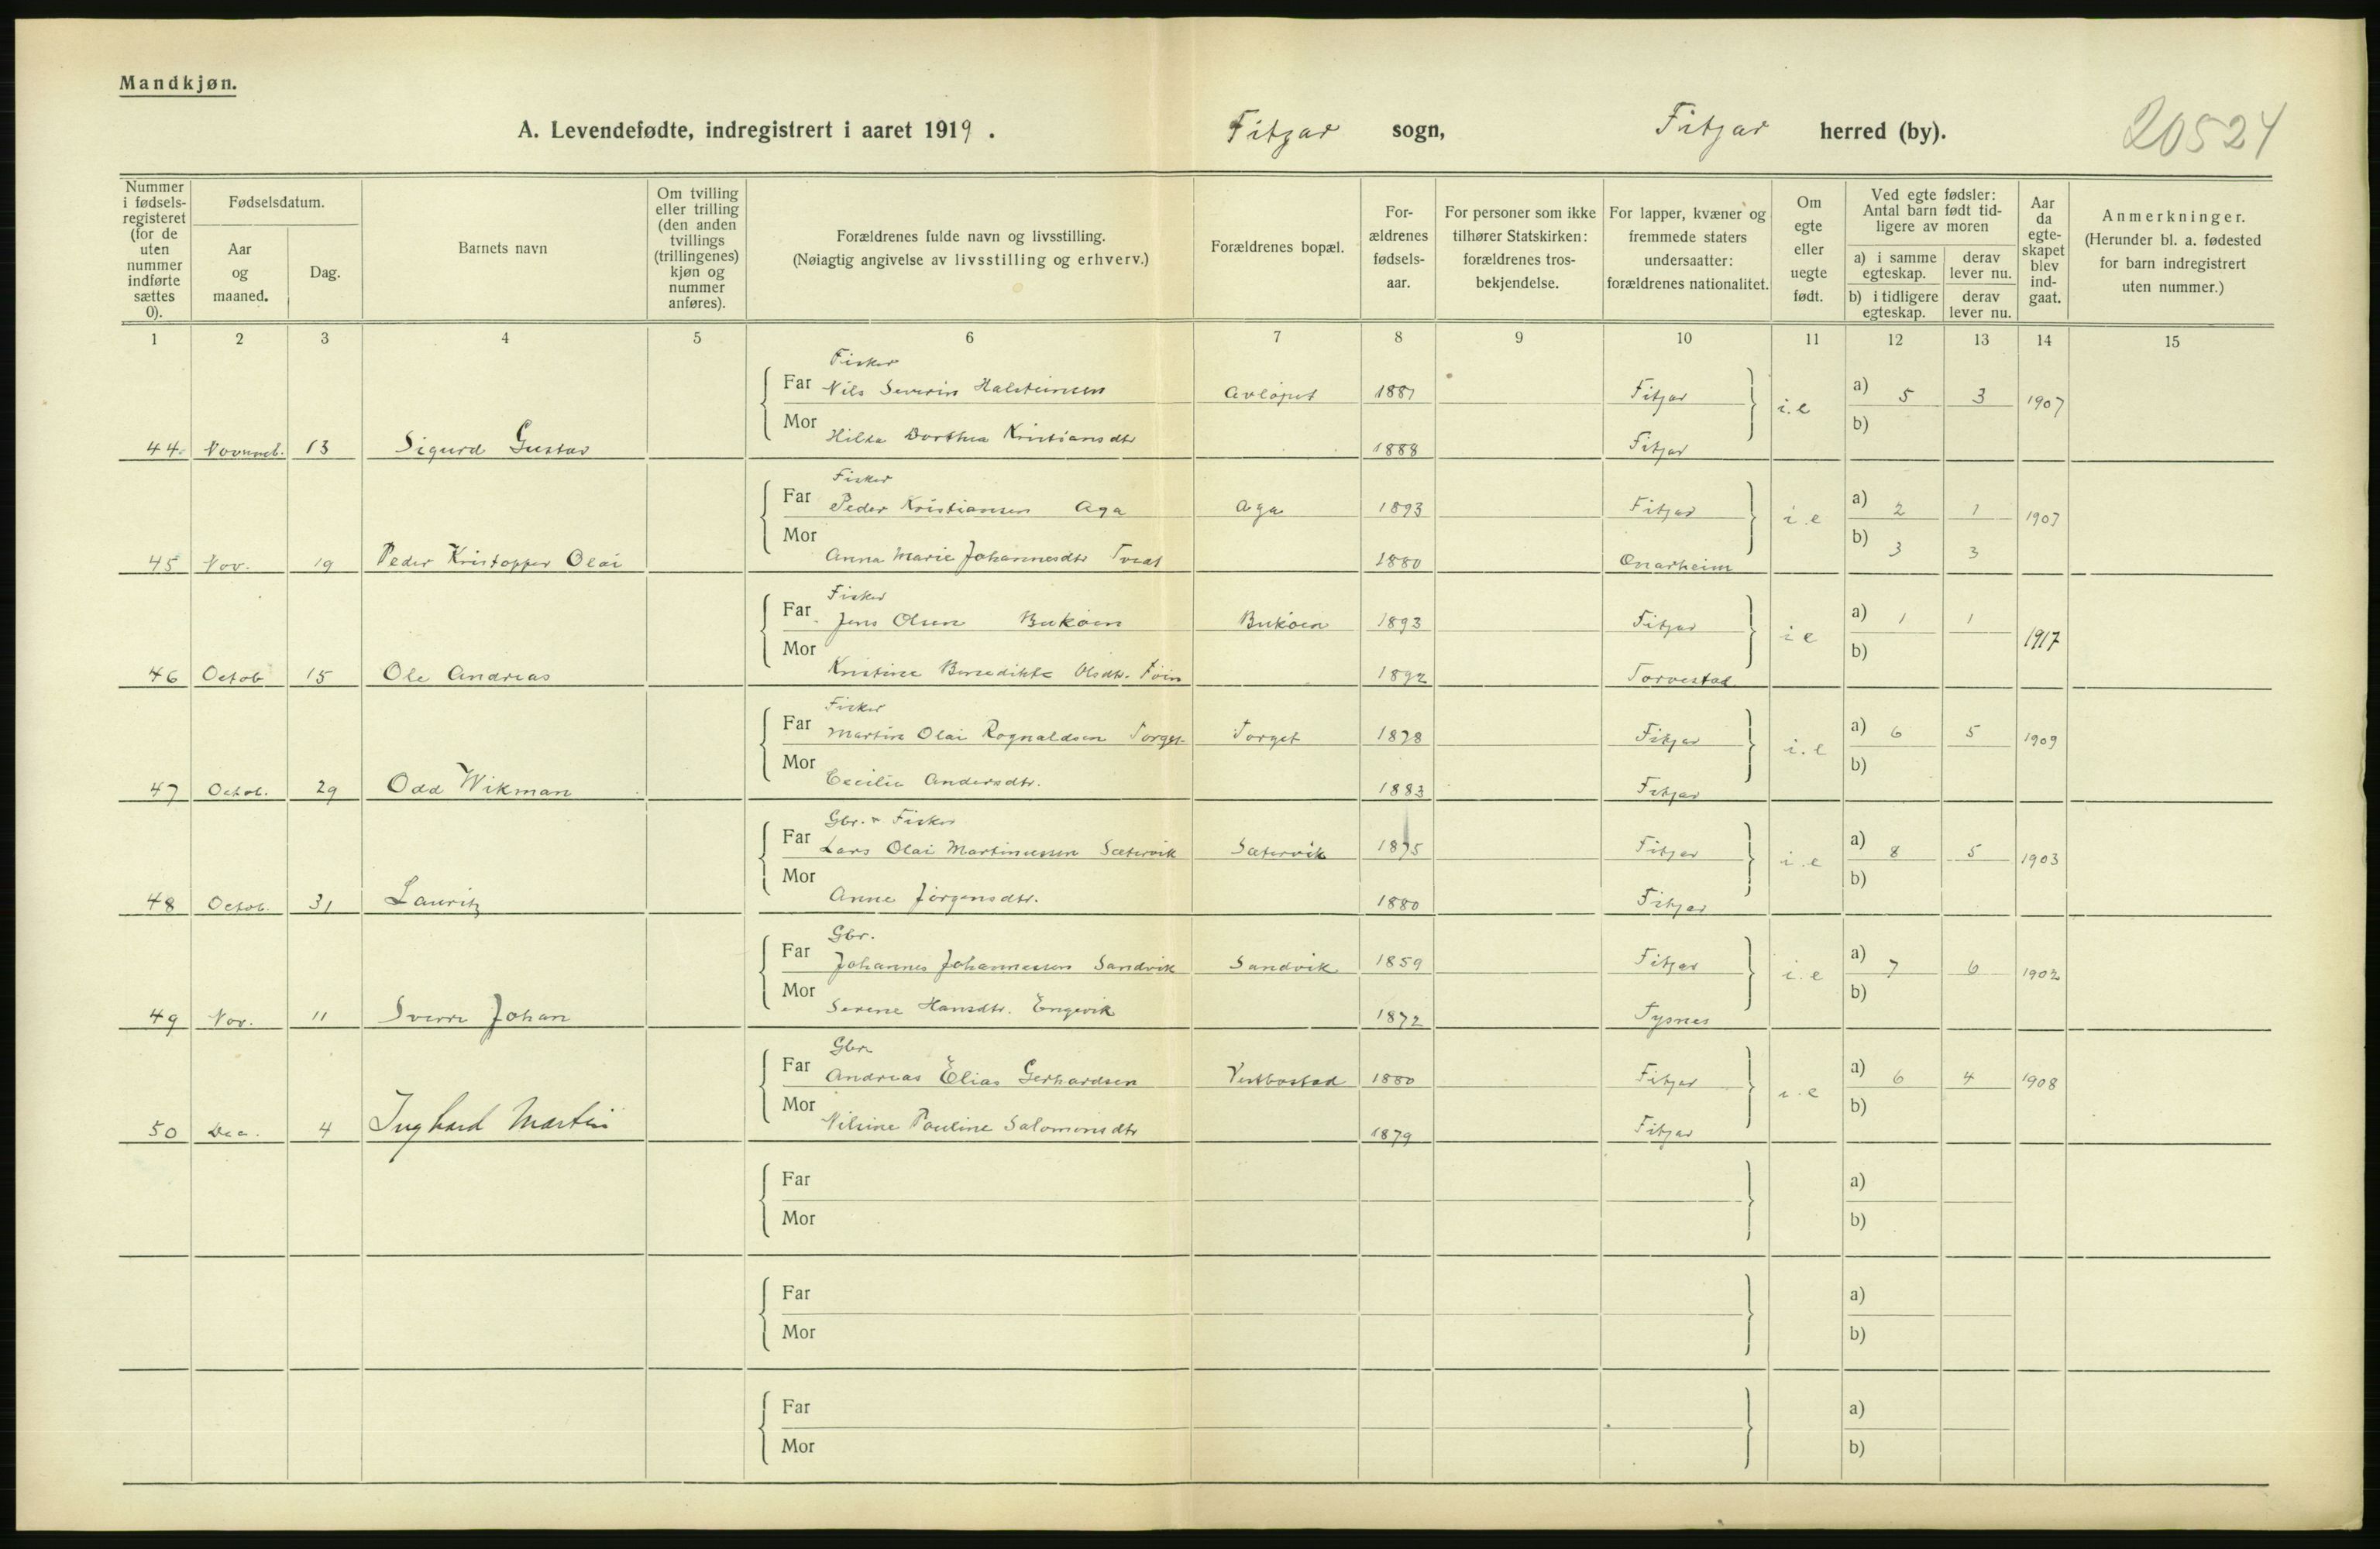 Mandkjøn.
A. Levendefødte, indregistrert i aaret 1919. Fitjar sogn, Fitjar herred (by). 20524
Nummer i fødsels-registeret (for de uten nummer indførte sættes 0).
Fødselsdatum.
Aar og maaned.
Dag.
Barnets navn
Om tvilling eller trilling (den anden tvillings (trillingenes) kjøn og nummer anføres).
Forældrenes fulde navn og livsstilling.
(Nøiagtig angivelse av livsstilling og erhverv.)
Forældrenes bopæl.
For-ældrenes fødsels-aar.
For personer som ikke tilhører Statskirken: forældrenes tros-bekjendelse.
For lapper, kvæner og fremmede staters undersaatter: forældrenes nationalitet.
Om egte eller uegte født.
Ved egte fødsler: Antal barn født tid-ligere av moren
a) i samme egteskap.
derav lever nu.
b) i tidligere egteskap.
derav lever nu.
Aar da egte-skapet blev ind-gaat.
Anmerkninger.
(Herunder bl. a. fødested for barn indregistrert uten nummer.)
1 2 3 4 5 6 7 8 9 10 11 12 13 14 15
Fisker
Far Nils Severin Halsteinsen Avløpet 1887 Fitjar i.e a) 5 3 1907
Mor Hilda Dorthea Kristiansdtr 1888 Fitjar b)
44. Novemb. 13 Sigurd Gustav
Fisker
Far Peder Kristiansen Aga Aga 1893 Fitjar i.e a) 2 1 1907
Mor Anna Marie Johannesdtr Tveat 1880 Onarheim b) 3 3
45 Nov. 19 Peder Kristopper Olai
Fisker
Far Jens Olsen Bukøen Bukøen 1893 Fitjar i e a) 1 1 1917
Mor Kristine Benedikte Olsdtr. 1892 Torvestad b)
46 Octob 15 Ole Andreas
Fisker
Far Martin Olai Rognaldsen Torget Torget 1878 Fitjar i.e a) 6 5 1909
Mor Cecilie Andersdtr. 1883 Fitjar b)
47 Octob. 29 Odd Wikman
Gbr. & Fisker
Far Lars Olai Martinussen Sætervik Sætervik 1875 Fitjar i.e a) 8 5 1903
Mor Anne Jørgensdtr. 1880 Fitjar b)
48 Octob. 31 Lauritz
Gbr.
Far Johannes Johannessen Sandvik Sandvik 1859 Fitjar i.e a) 7 6 1902
Mor Serene Hansdtr. Engevik 1872 Tysnes b)
49 Nov. 11 Sverre Johan
Gbr.
Far Andreas Elias Gerhardsen Vestbostad 1880 Fitjar i.e a) 6 4 1908
Mor Nilsine Pauline Salomonsdtr 1879 Fitjar b)
50 Dec. 4 Inghard Martin
Far a)
Mor b)
Far a)
Mor b)
Far a)
Mor b)